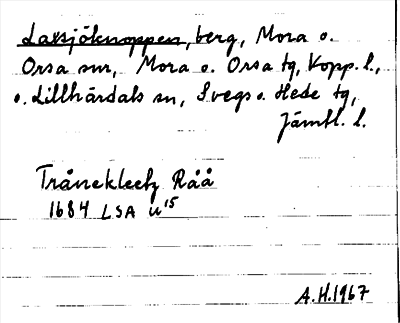 Laxsjöknoppen, berg, Mora o.
Orsa snr, Mora o. Orsa tg, Kopp. l.,
o. Lillhärdals sn, Svegs o. Hede tg,
Jämtl. l.
Trånekleetz Råå
1684 LSA u15
A.H. 1967